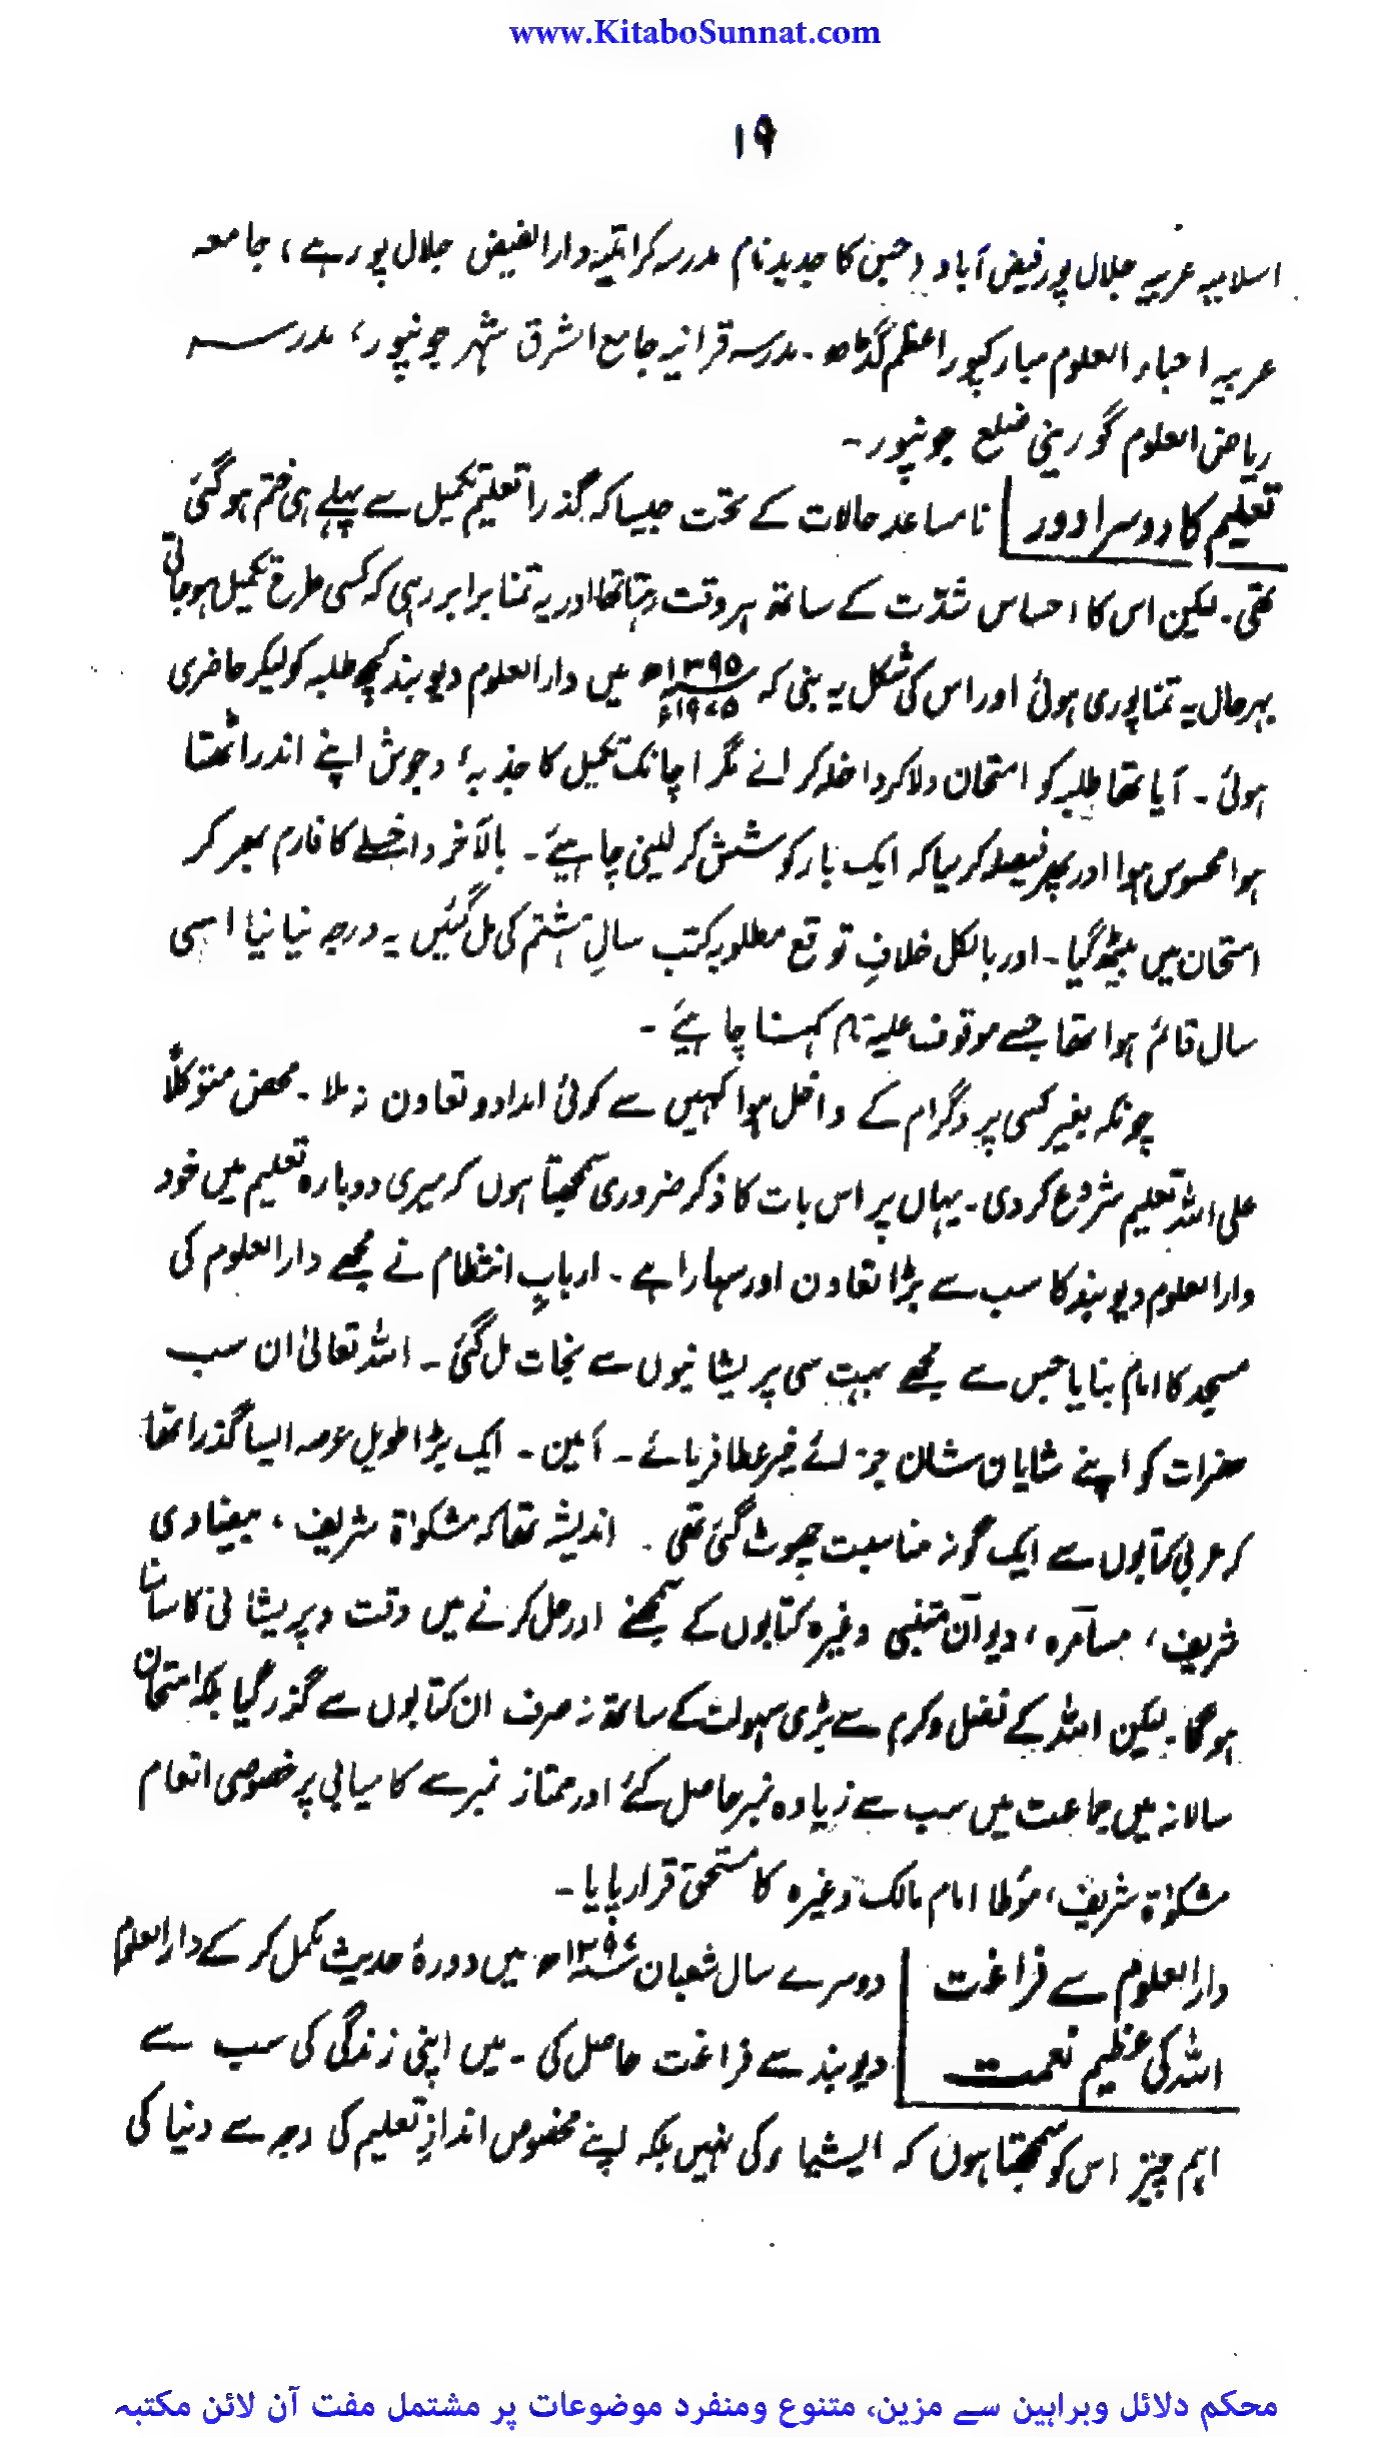 www.KitaboSunnat.com
۱۹
اسلامیہ عربیہ جلال پور فیض آباد (جس کا جدید نام مدرسہ کرامتیہ دارالفیض جلال پور ہے، جامعہ
عربیہ احیاء العلوم مبارکپور اعظم گڈھ۔ مدرسہ قرانیہ جامع الشرق شہر جونپور، مدرسہ
ریاض العلوم گورینی ضلع جونپور۔
تعلیم کا دوسرا دور نامساعد حالات کے تحت جیسا کہ گذرا تعلیم تکمیل سے پہلے ہی ختم ہو گئی
تھی۔ لیکن اس کا احساس شدّت کے ساتھ ہر وقت رہتا تھا اور یہ تمنا برابر رہی کہ کسی طرح تکمیل ہو جاتی
بہرحال یہ تمنا پوری ہوئی اور اس کی شکل یہ بنی کہ ۱۳۹۵ھ ۱۹۷۵ء میں دارالعلوم دیوبند کچھ طلبہ کو لیکر حاضری
ہوئی۔ آیا تھا طلبہ کو امتحان دلا کر داخلہ کرانے مگر اچانک تکمیل کا جذبہ و جوش اپنے اندر اٹھتا
ہوا محسوس ہوا اور پھر فیصلہ کر لیا کہ ایک بار کوشش کر لینی چاہیئے۔ بالآخر داخلے کا فارم بھر کر
امتحان میں بیٹھ گیا۔ اور بالکل خلافِ توقع مطلوبہ کتب سالِ ہشتم کی مل گئیں یہ درجہ نیا نیا اسی
سال قائم ہوا تھا جسے موقوف علیہ کہنا چاہیئے۔
چونکہ بغیر کسی پروگرام کے داخل ہوا کہیں سے کوئی امداد و تعاون نہ ملا۔ محض متوکلاً
علی اللہ تعلیم شروع کر دی۔ یہاں پر اس بات کا ذکر ضروری سمجھتا ہوں کہ میری دوبارہ تعلیم میں خود
دارالعلوم دیوبند کا سب سے بڑا تعاون اور سہارا ہے۔ اربابِ انتظام نے مجھے دارالعلوم کی
مسجد کا امام بنایا جس سے مجھے بہت سی پریشانیوں سے نجات مل گئی۔ اللہ تعالیٰ ان سب
حضرات کو اپنے شایان شان جزائے خیر عطا فرمائے۔ آمین۔ ایک بڑا طویل عرصہ ایسا گذرا تھا
کہ عربی کتابوں سے ایک گونہ مناسبت چھوٹ گئی تھی۔ اندیشہ تھا کہ مشکوٰۃ شریف، بیضاوی
شریف، مسامرہ، دیوان متنبی وغیرہ کتابوں کے سمجھنے اور حل کرنے میں دقت و پریشانی کا سامنا
ہوگا۔ لیکن اللہ کے فضل و کرم سے بڑی سہولت کے ساتھ نہ صرف ان کتابوں سے گذر گیا بلکہ امتحان
سالانہ میں جماعت میں سب سے زیادہ نمبر حاصل کئے اور ممتاز نمبر سے کامیابی پر خصوصی انعام
مشکوٰۃ شریف، مؤطا امام مالک وغیرہ کا مستحق قرار پایا۔
دارالعلوم سے فراغت دوسرے سال شعبان ۱۳۹۶ھ میں دورۂ حدیث مکمل کر کے دارالعلوم
اللہ کی عظیم نعمت دیوبند سے فراغت حاصل کی۔ میں اپنی زندگی کی سب سے
اہم چیز اس کو سمجھتا ہوں کہ ایشیاء کی نہیں بلکہ اپنے مخصوص اندازِ تعلیم کی وجہ سے دنیا کی
محکم دلائل وبراہین سے مزین، متنوع ومنفرد موضوعات پر مشتمل مفت آن لائن مکتبہ